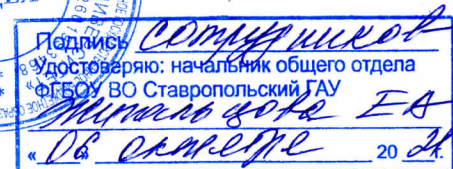 Подпись сотрудников
Удостоверяю: начальник общего отдела
ФГБОУ ВО Ставропольский ГАУ
ЕА
«06» октября 20 г.